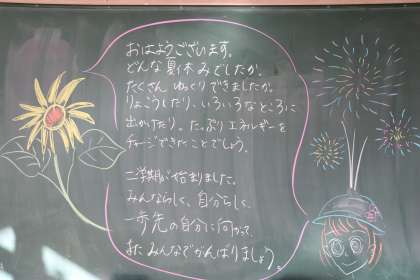 おはようございます。
どんな夏休みでしたか。
たくさんゆっくりできましたか。
りょこうしたり、いろいろなところに
出かけたり。たっぷりエネルギーを
チャージできたことでしょう。
二学期が始まりました。
みんならしく、自分らしく、
一歩先の自分に向かって、
またみんなでがんばりましょう。